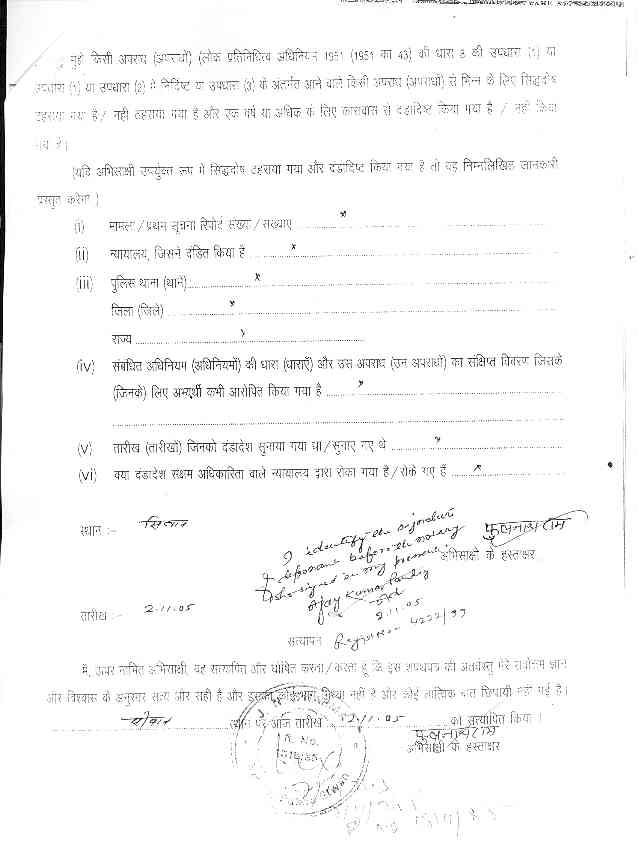 मुझे किसी अपराध (अपराधों) (लोक प्रतिनिधित्व अधिनियम 1951 (1951 का 43) की धारा 8 की उपधारा (1) या
उपधारा (1) या उपधारा (2) में निर्दिष्ट या उपधारा (3) के अंतर्गत आने वाले किसी अपराध (अपराधों) से भिन्न के लिए सिद्धदोष
ठहराया गया है / नहीं ठहराया गया है और एक वर्ष या अधिक के लिए कारावास से दंडादिष्ट किया गया है / नहीं किया
गया है।
(यदि अभिसाक्षी उपर्युक्त रूप में सिद्धदोष ठहराया गया और दंडादिष्ट किया गया है तो वह निम्नलिखित जानकारी
प्रस्तुत करेगा)
(i) मामला / प्रथम सूचना रिपोर्ट संख्या / संख्याएं x
(ii) न्यायालय, जिसने दंडित किया है x
(iii) पुलिस थाना (थाने) x
जिला (जिले) x
राज्य x
(iv) संबंधित अधिनियम (अधिनियमों) की धारा (धाराएँ) और उस अपराध (उन अपराधों) का संक्षिप्त विवरण जिसके
(जिनके) लिए अभ्यर्थी कभी आरोपित किया गया है x
(v) तारीख (तारीखें) जिनको दंडादेश सुनाया गया था / सुनाए गए थे x
(vi) क्या दंडादेश सक्षम अधिकारिता वाले न्यायालय द्वारा रोका गया है / रोके गए हैं x
स्थान :- सिवान
I identify the signature
deponent before the notary
who signed in my presence
फुलनाथ राम
अभिसाक्षी के हस्ताक्षर
Ajay Kumar
2.11.05
तारीख :- 2.11.05
4222/99
सत्यापन
मैं, ऊपर नामित अभिसाक्षी, यह सत्यापित और घोषित करता / करती हूं कि इस शपथपत्र की अंतर्वस्तु मेरे सर्वोत्तम ज्ञान
और विश्वास के अनुसार सत्य और सही है और इसका कोई भाग मिथ्या नहीं है और कोई तात्विक बात छिपायी नहीं गई है।
स्थान पर आज तारीख 2.11.05 का सत्यापित किया।
फुलनाथ राम
अभिसाक्षी के हस्ताक्षर